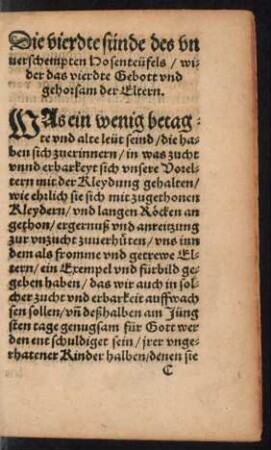 Die vierdte sünde des vn
uerschempten Hosenteüfels / wi-
der das vierdte Gebott vnd
gehorsam der Eltern.
WAs ein wenig betag-
te vnd alte leüt seind / die ha-
ben sich zuerinnern / in was zucht
vnnd erbarkeyt sich vnsere Vorel-
tern mit der Kleydung gehalten /
wie ehrlich sie sich mit zugethonen
Kleydern / vnd langen Röcken an
gethon / ergernuß vnd anreitzung
zur vnzucht zuuerhüten / vns inn
dem als fromme vnd getrewe El-
tern / ein Exempel vnd fürbild ge-
geben haben / das wir auch in sol-
cher zucht vnd erbarkeit auffwach
sen sollen / vñ deßhalben am Jüng
sten tage genugsam für Gott wer
den entschuldiget sein / jrer vnge-
rhatener Kinder halben / denen sie
C